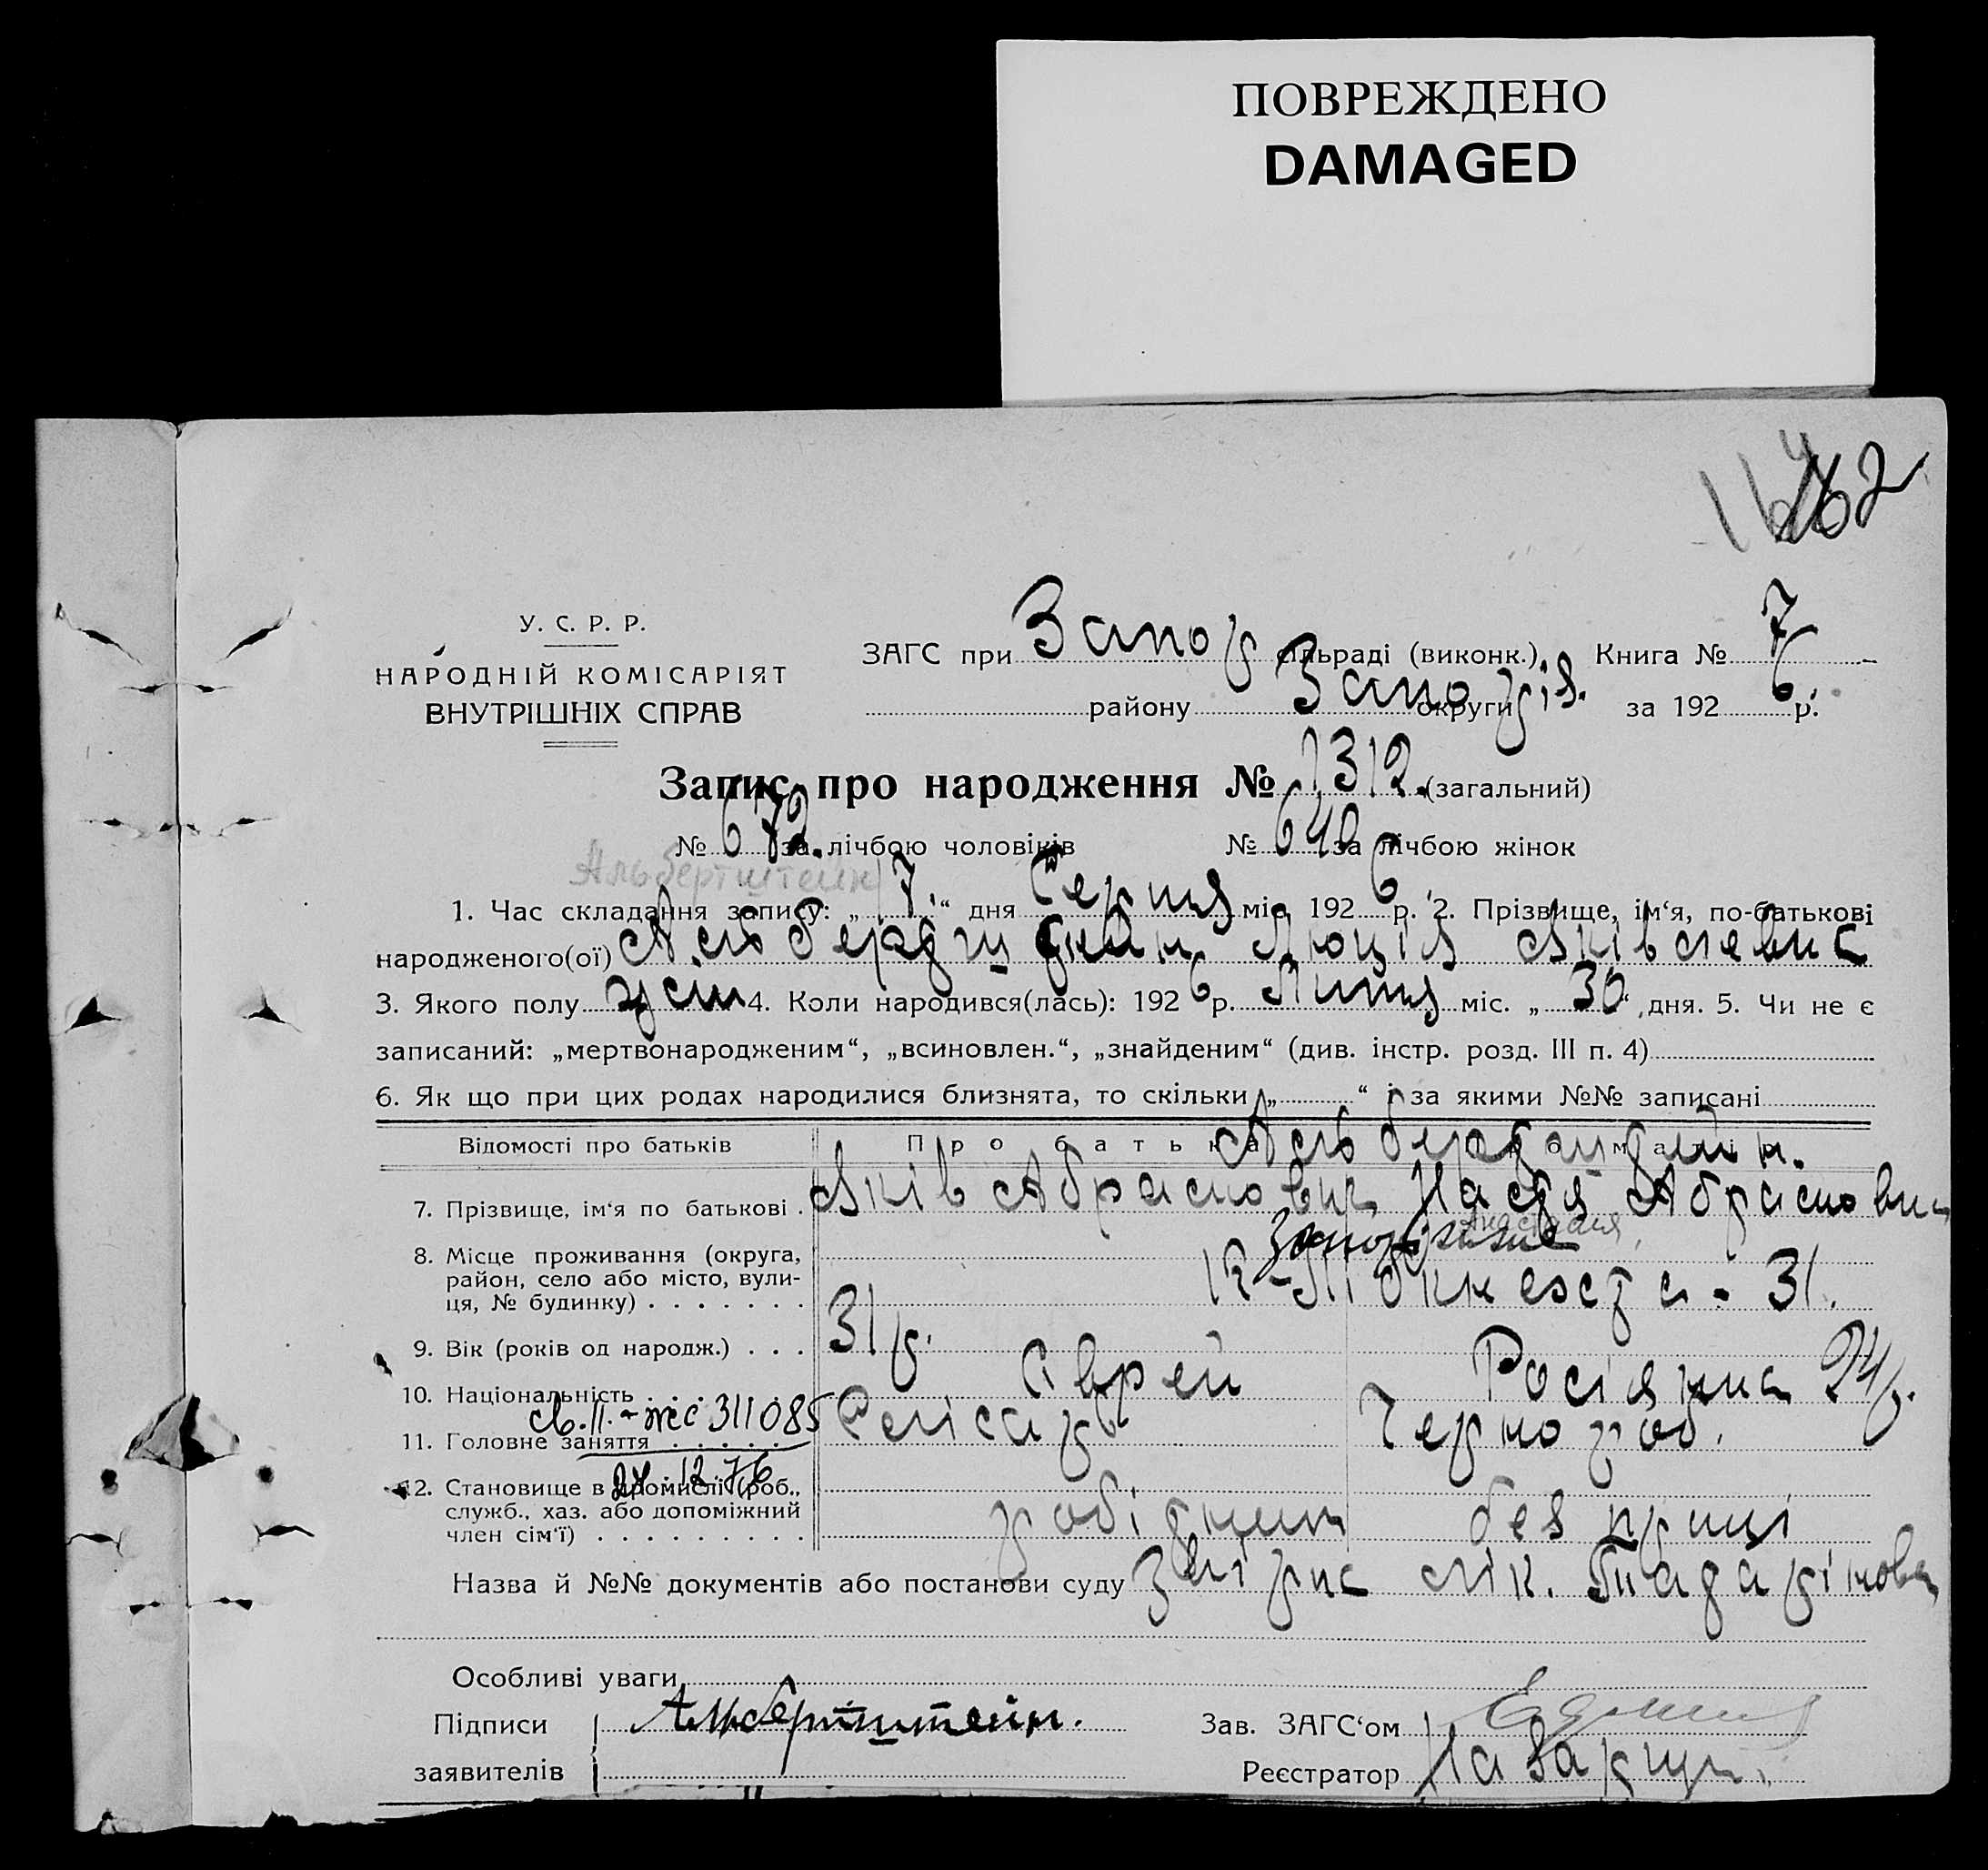 ПОВРЕЖДЕНО
DAMAGED
162
У. С. Р. Р.
НАРОДНІЙ КОМІСАРІЯТ
ВНУТРІШНІХ СПРАВ
ЗАГС при Запор сільраді (виконк.), Книга № 7
району Запоріз. округи за 192 6 р.
Запис про народження № 1312. (загальний)
№ 672. за лічбою чоловіків № 640 за лічбою жінок
Альбертштейн
1. Час складання запису: „ 7. “ дня Серпня міс. 192 6 р. 2. Прізвище, ім‘я, по-батькові
народженого(ої) Альбердштейн Люція Яківлевна
3. Якого полу жін 4. Коли народився(лась): 192 6 р. Липня міс. „ 30 “ дня. 5. Чи не є
записаний: „мертвонародженим“, „всиновлен.“, „знайденим“ (див. інстр. розд. III п. 4)
6. Як що при цих родах народилися близнята, то скільки „ “ і за якими №№ записані
Відомості про батьків Про батька Про матір
Альбердштейн.
7. Прізвище, ім‘я по батькові . Яків Абрамович Настя Абрамовна
Анастасия
8. Місце проживання (округа, Запоріжжє
район, село або місто, вули-
ця, № будинку) . . . . . . . К-Лібкнехта - 31.
9. Вік (років од народж.) . . . 31 р. 24 р.
10. Національність . . . . . Єврей Росіянка
св. II - жс 311085
11. Головне заняття . . . . . Слісарь Чернороб.
27. 12. 76
12. Становище в промислі (роб.,
служб., хаз. або допоміжний
член сім‘ї) . . . . . . . . . робітник без праці
Назва й №№ документів або постанови суду лік.
Особливі уваги
Підписи Альбертштейн. Зав. ЗАГС‘ом
заявителів Реєстратор